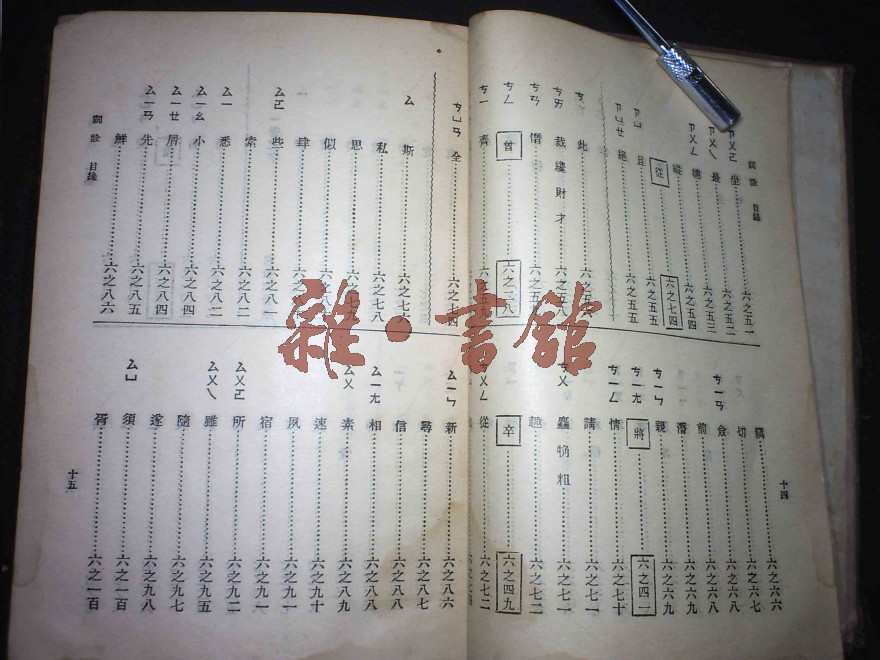 詞詮 目錄
ㄗㄨㄛ 坐 六之五一
ㄗㄨㄟ 最 六之五二
ㄗㄨㄥ 總 六之五三
縱 六之五四
從 六之七四
ㄗㄩ 且 六之五五
ㄗㄩㄝ 絕 六之五五
ㄘ 此 六之五六
ㄘㄞ 裁 纔 財 才 六之五八
ㄘㄢ 憯 六之五
ㄘㄥ 曾 六之二八
ㄘㄧ 齊
ㄘㄩㄢ 全 六之七四
ㄙ 斯 六之七
私 六之七八
思 六之七九
似 六之八
肆 六之八
ㄙㄛ 些 六之八一
索 六之八一
ㄙㄧ 悉 六之八二
ㄙㄧㄠ 小 六之八二
ㄙㄧㄝ 屑 六之八四
ㄙㄧㄢ 先 六之八五
鮮 六之八六
詞詮 目錄
竊 六之六六
切 六之六七
ㄘㄧㄢ 僉 六之六八
前 六之六八
潛 六之六九
ㄘㄧㄣ 親 六之六九
ㄘㄧㄤ 將 六之四一
ㄘㄧㄥ 情 六之七十
請 六之七一
ㄘㄨ 麤 牧 粗 六之七一
趣 六之七二
卒 六之四九
ㄘㄨㄥ 從 六之七二
ㄙㄧㄣ 新 六之八六
尋 六之八七
信 六之八八
ㄙㄧㄤ 相 六之八八
ㄙㄨ 素 六之八九
速 六之九十
夙 六之九一
宿 六之九一
ㄙㄨㄛ 所 六之九二
ㄙㄨㄟ 雖 六之九五
隨 六之九七
遂 六之九八
ㄙㄩ 須 六之一百
胥 六之一百
十四
十五
雜·書館